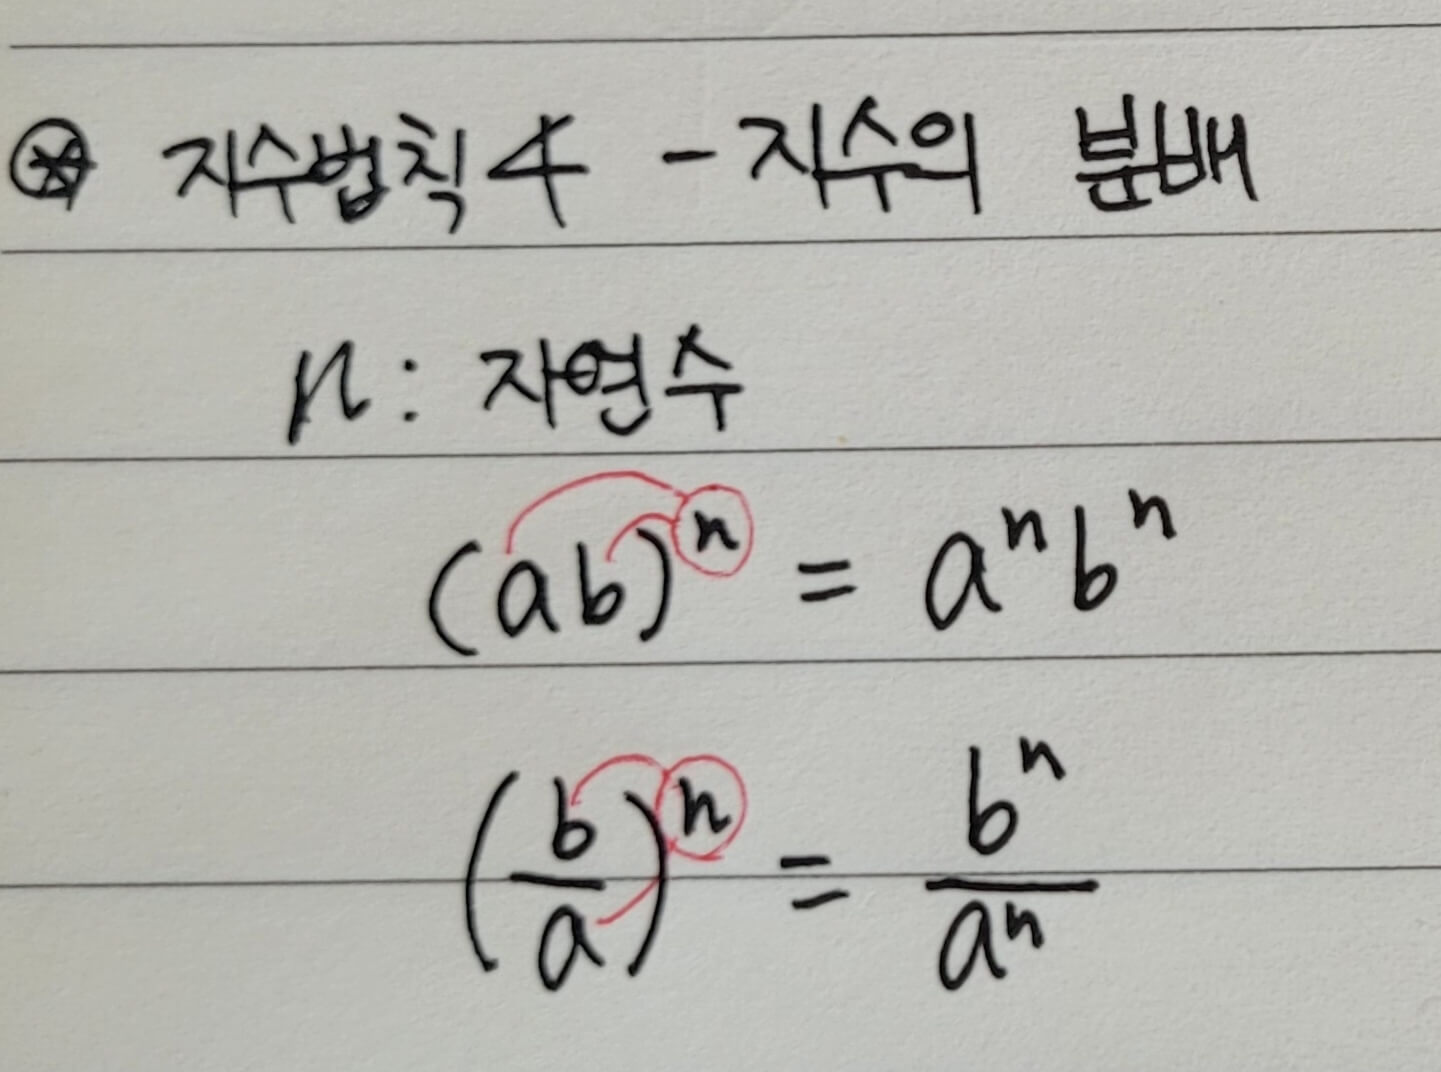 ⊛ 지수법칙 4 - 지수의 분배
n : 자연수
(ab)ⁿ = aⁿbⁿ
(b/a)ⁿ = bⁿ/aⁿ